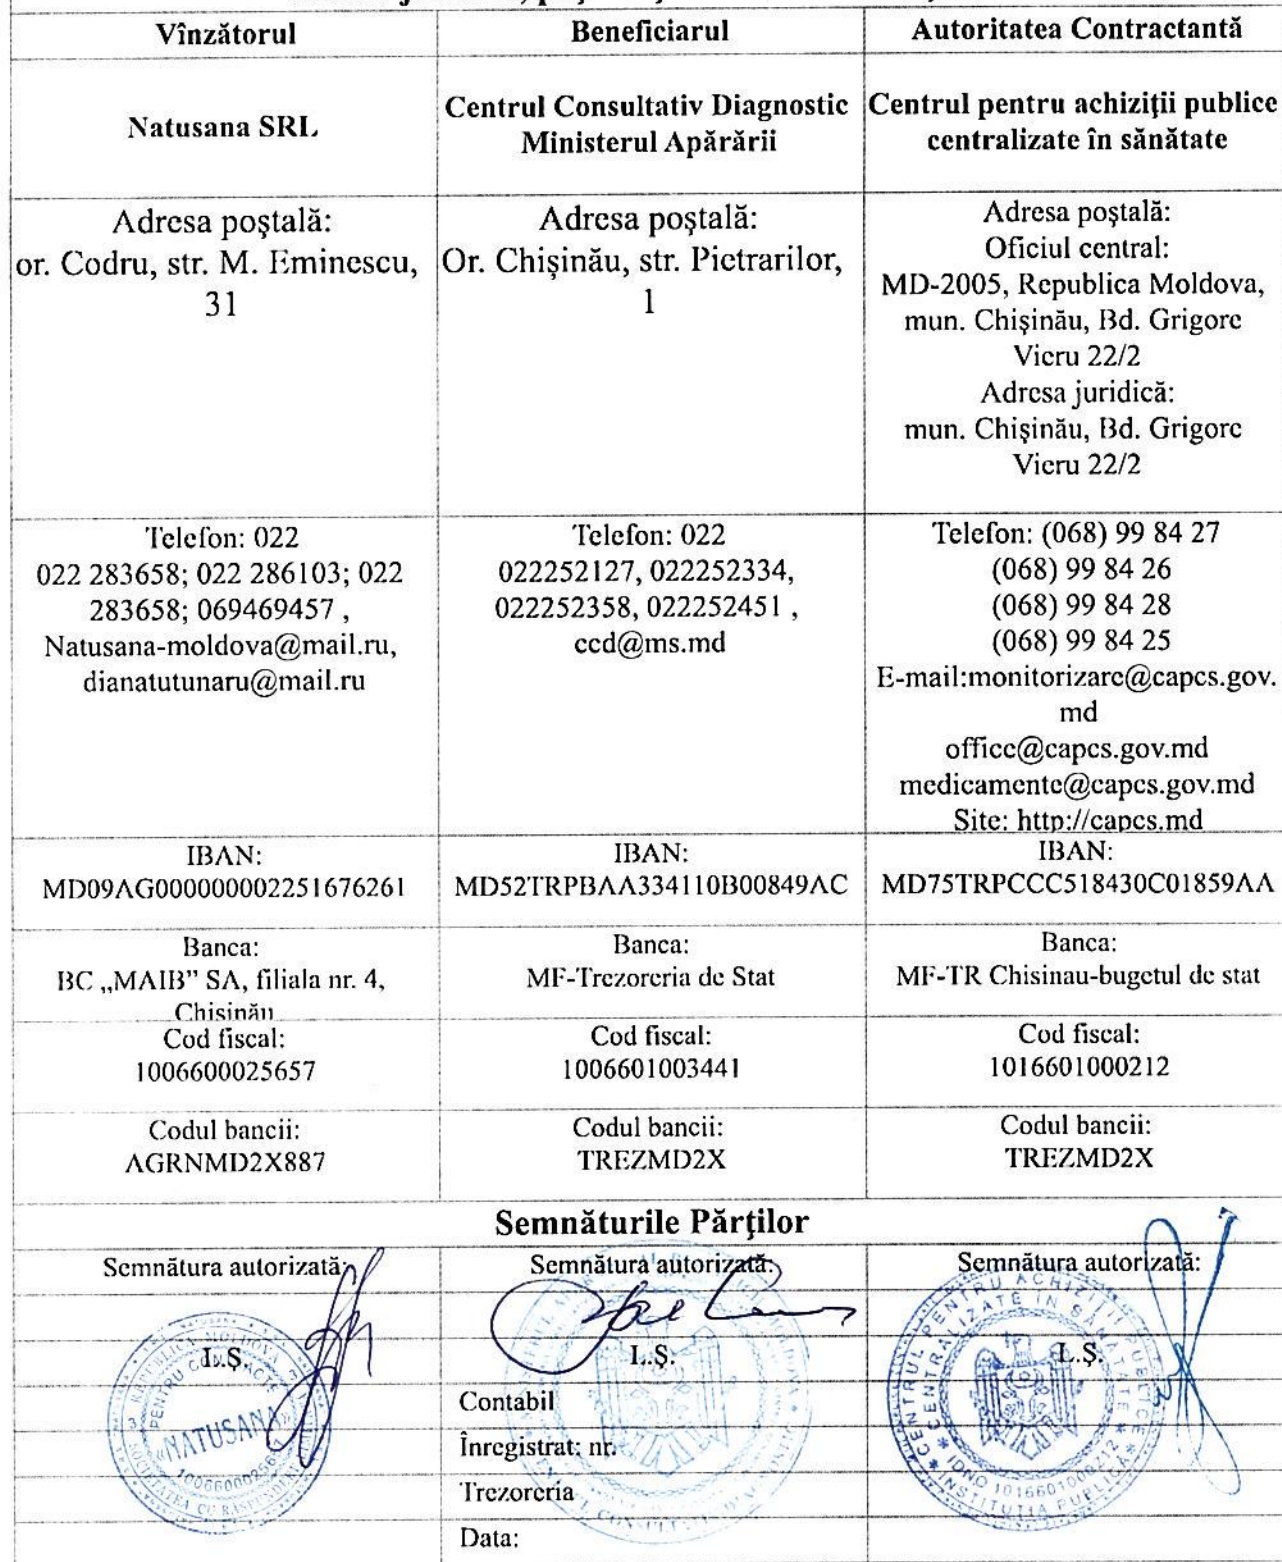 Vînzătorul
Beneficiarul
Autoritatea Contractantă
Natusana SRL
Centrul Consultativ Diagnostic
Ministerul Apărării
Centrul pentru achiziţii publice
centralizate în sănătate
Adresa poştală:
or. Codru, str. M. Eminescu,
31
Adresa poştală:
Or. Chişinău, str. Pietrarilor,
1
Adresa poştală:
Oficiul central:
MD-2005, Republica Moldova,
mun. Chişinău, Bd. Grigore
Vieru 22/2
Adresa juridică:
mun. Chişinău, Bd. Grigore
Vieru 22/2
Telefon: 022
022 283658; 022 286103; 022
283658; 069469457 ,
Natusana-moldova@mail.ru,
dianatutunaru@mail.ru
Telefon: 022
022252127, 022252334,
022252358, 022252451 ,
ccd@ms.md
Telefon: (068) 99 84 27
(068) 99 84 26
(068) 99 84 28
(068) 99 84 25
E-mail:monitorizare@capcs.gov.
md
office@capcs.gov.md
medicamente@capcs.gov.md
Site: http://capcs.md
IBAN:
MD09AG000000002251676261
IBAN:
MD52TRPBAA334110B00849AC
IBAN:
MD75TRPCCC518430C01859AA
Banca:
BC „MAIB” SA, filiala nr. 4,
Chişinău
Banca:
MF-Trezoreria de Stat
Banca:
MF-TR Chisinau-bugetul de stat
Cod fiscal:
1006600025657
Cod fiscal:
1006601003441
Cod fiscal:
1016601000212
Codul bancii:
AGRNMD2X887
Codul bancii:
TREZMD2X
Codul bancii:
TREZMD2X
Semnăturile Părţilor
Semnătura autorizată:
Semnătura autorizată:
Semnătura autorizată:
L.Ş.
L.Ş.
L.Ş.
REPUBLICA MOLDOVA
PENTRU CONTRACTE
«NATUSANA»
SOCIETATEA CU RĂSPUNDERE
CENTRUL PENTRU ACHIZIŢII PUBLICE
CENTRALIZATE ÎN SĂNĂTATE
IDNO 1016601000212
INSTITUŢIA PUBLICĂ
Contabil
Înregistrat: nr.
Trezoreria
Data: